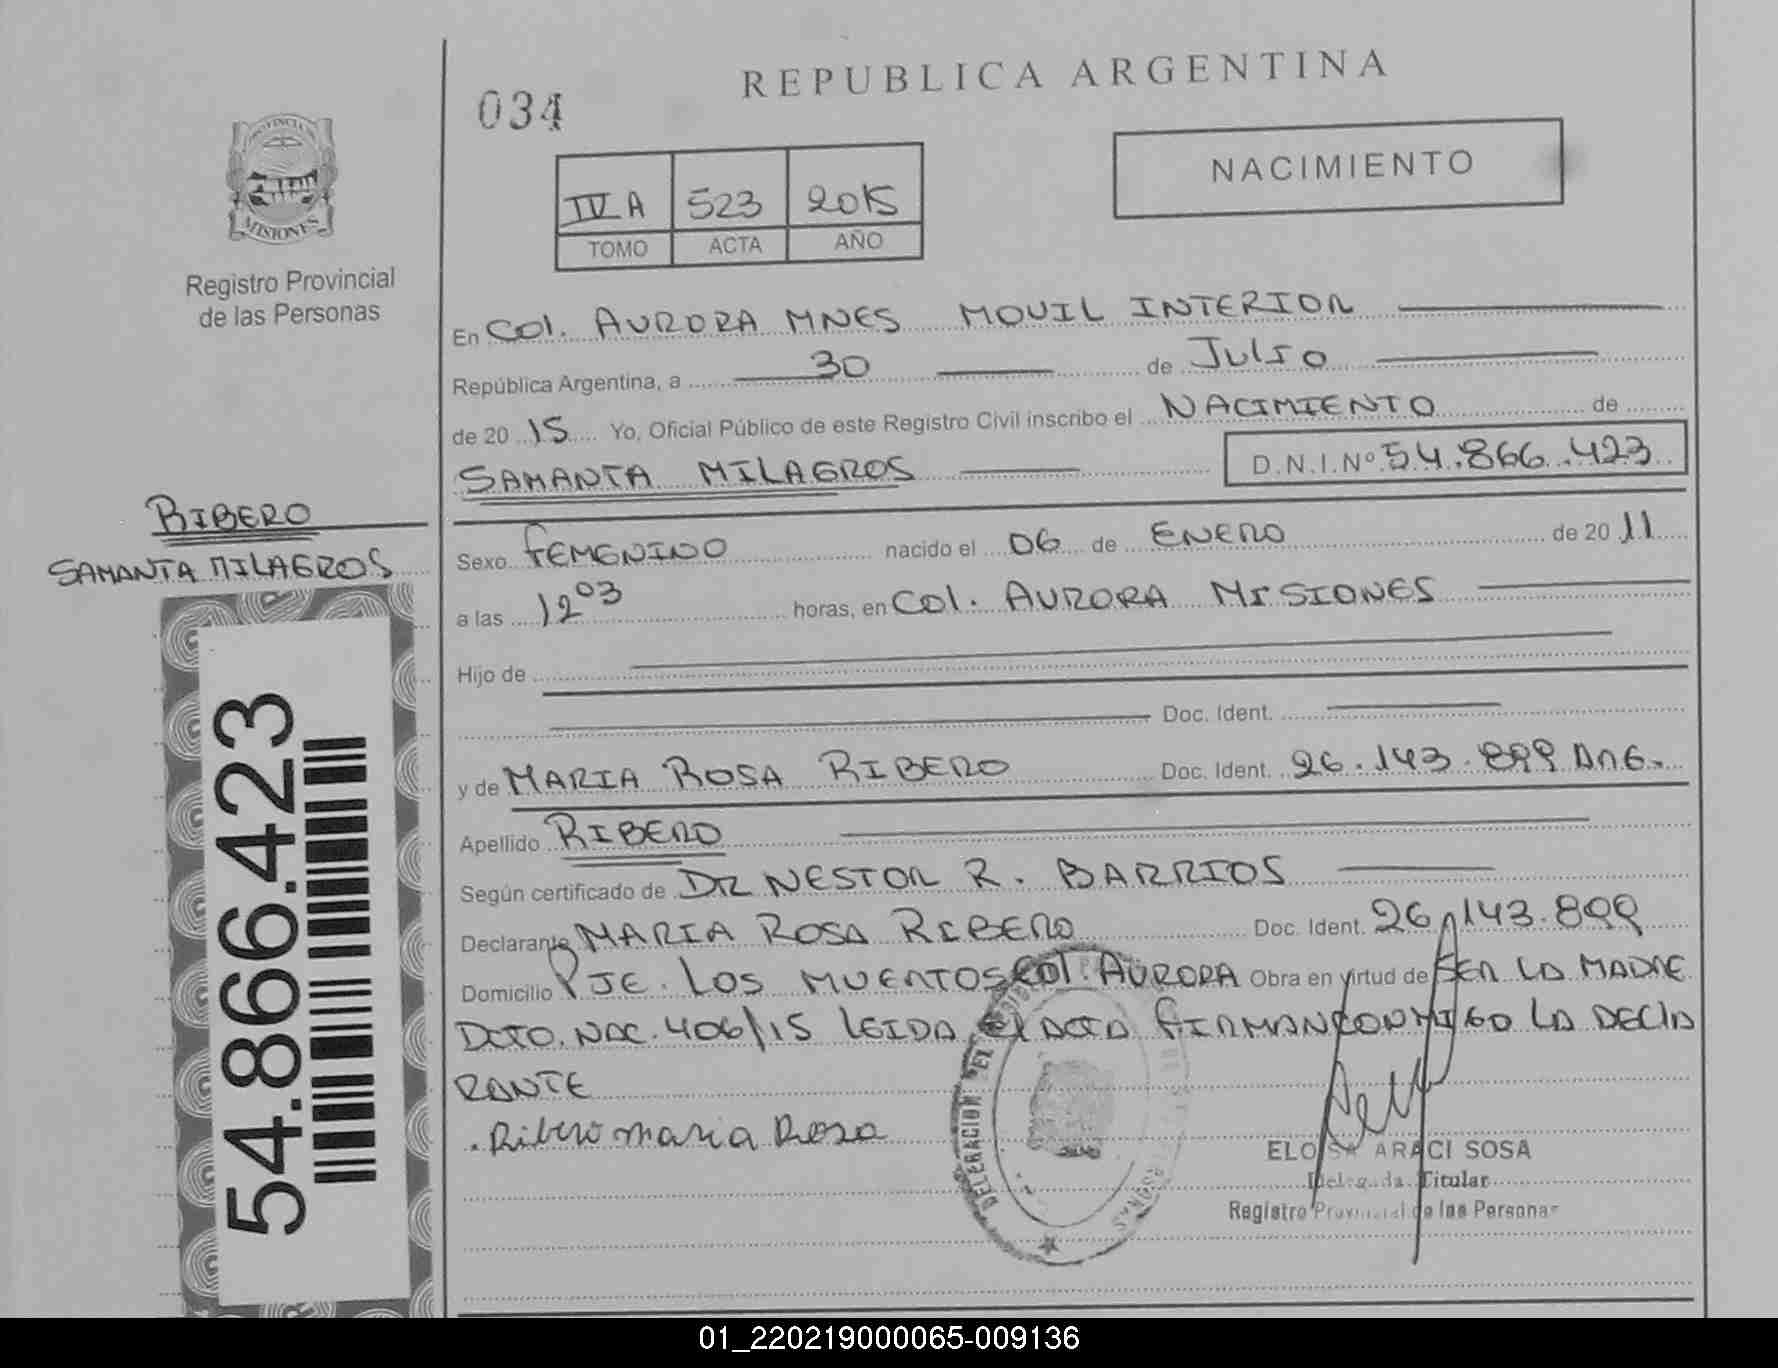 REPUBLICA ARGENTINA
034
NACIMIENTO
IV A 523 2015
TOMO ACTA AÑO
PROVINCIA DE
MISIONES
Registro Provincial
de las Personas
En Col. AURORA MNES MOVIL INTERIOR
República Argentina, a 30 de JULIO
de 20 15 Yo, Oficial Público de este Registro Civil inscribo el NACIMIENTO de
SAMANTA MILAGROS D.N.I.Nº 54.866.423
RIBERO
SAMANTA MILAGROS
Sexo FEMENINO nacido el 06 de ENERO de 20 11
a las 12º03 horas, en Col. AURORA MISIONES
Hijo de
Doc. Ident.
y de MARIA ROSA RIBERO Doc. Ident. 26.143.899 ARG.
Apellido RIBERO
Según certificado de DR NESTOR R. BARRIOS
Declarante MARIA ROSA RIBERO Doc. Ident. 26.143.899
Domicilio PJE. LOS MUERTOS COL AURORA Obra en virtud de SER LA MADRE
DCTO. NAC. 406/15 LEIDA el ACTA FIRMAN CONMIGO LA DECLA
RANTE
Ribero Maria Rosa
ELOISA ARACI SOSA
Delegada Titular
Registro Provincial de las Personas
54.866.423
01_220219000065-009136